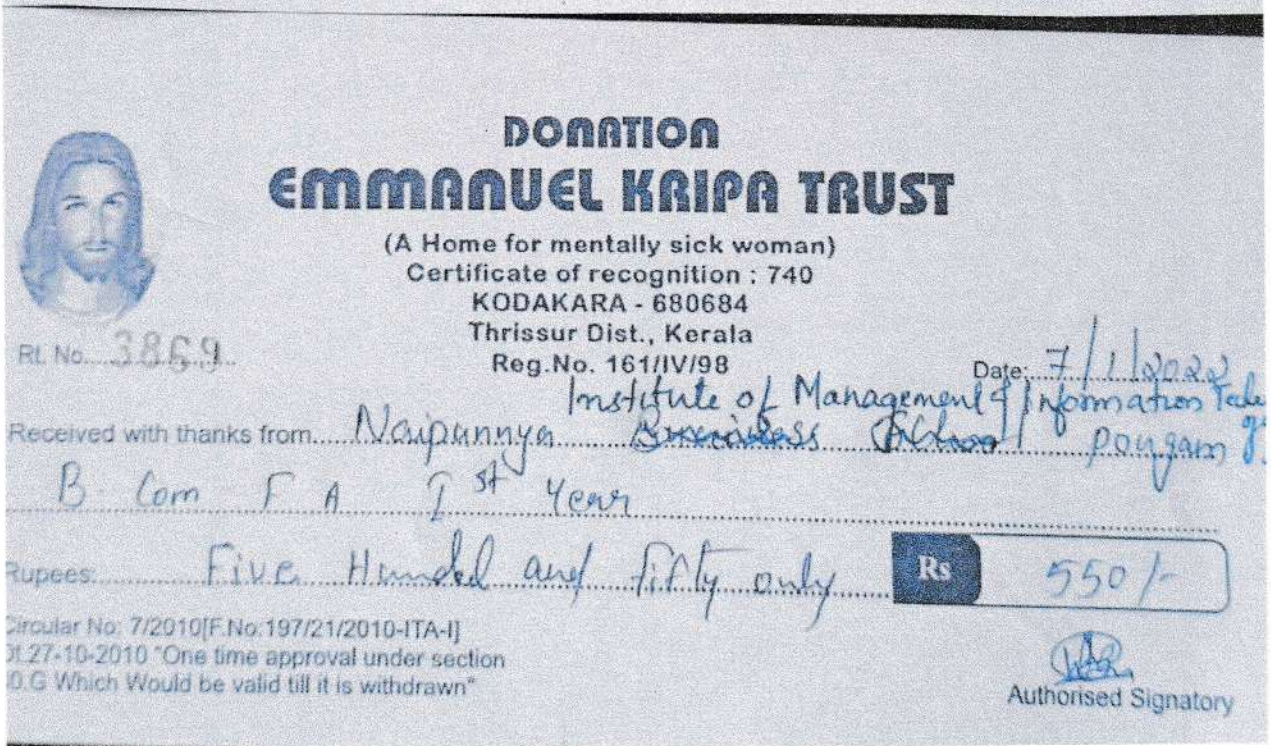 DONATION
EMMANUEL KRIPA TRUST
(A Home for mentally sick woman)
Certificate of recognition : 740
KODAKARA - 680684
Thrissur Dist., Kerala
Reg.No. 161/IV/98
Rt. No. 3869
Date: 7/1/2022
Institute of Management & Information
Received with thanks from Naipunnya Business School Pongam
B. Com F A Ist Year
Rupees: Five Hunded and fifty only Rs 550/-
Circular No: 7/2010[F.No.197/21/2010-ITA-I]
Dt.27-10-2010 "One time approval under section
0.G Which Would be valid till it is withdrawn"
Authorised Signatory